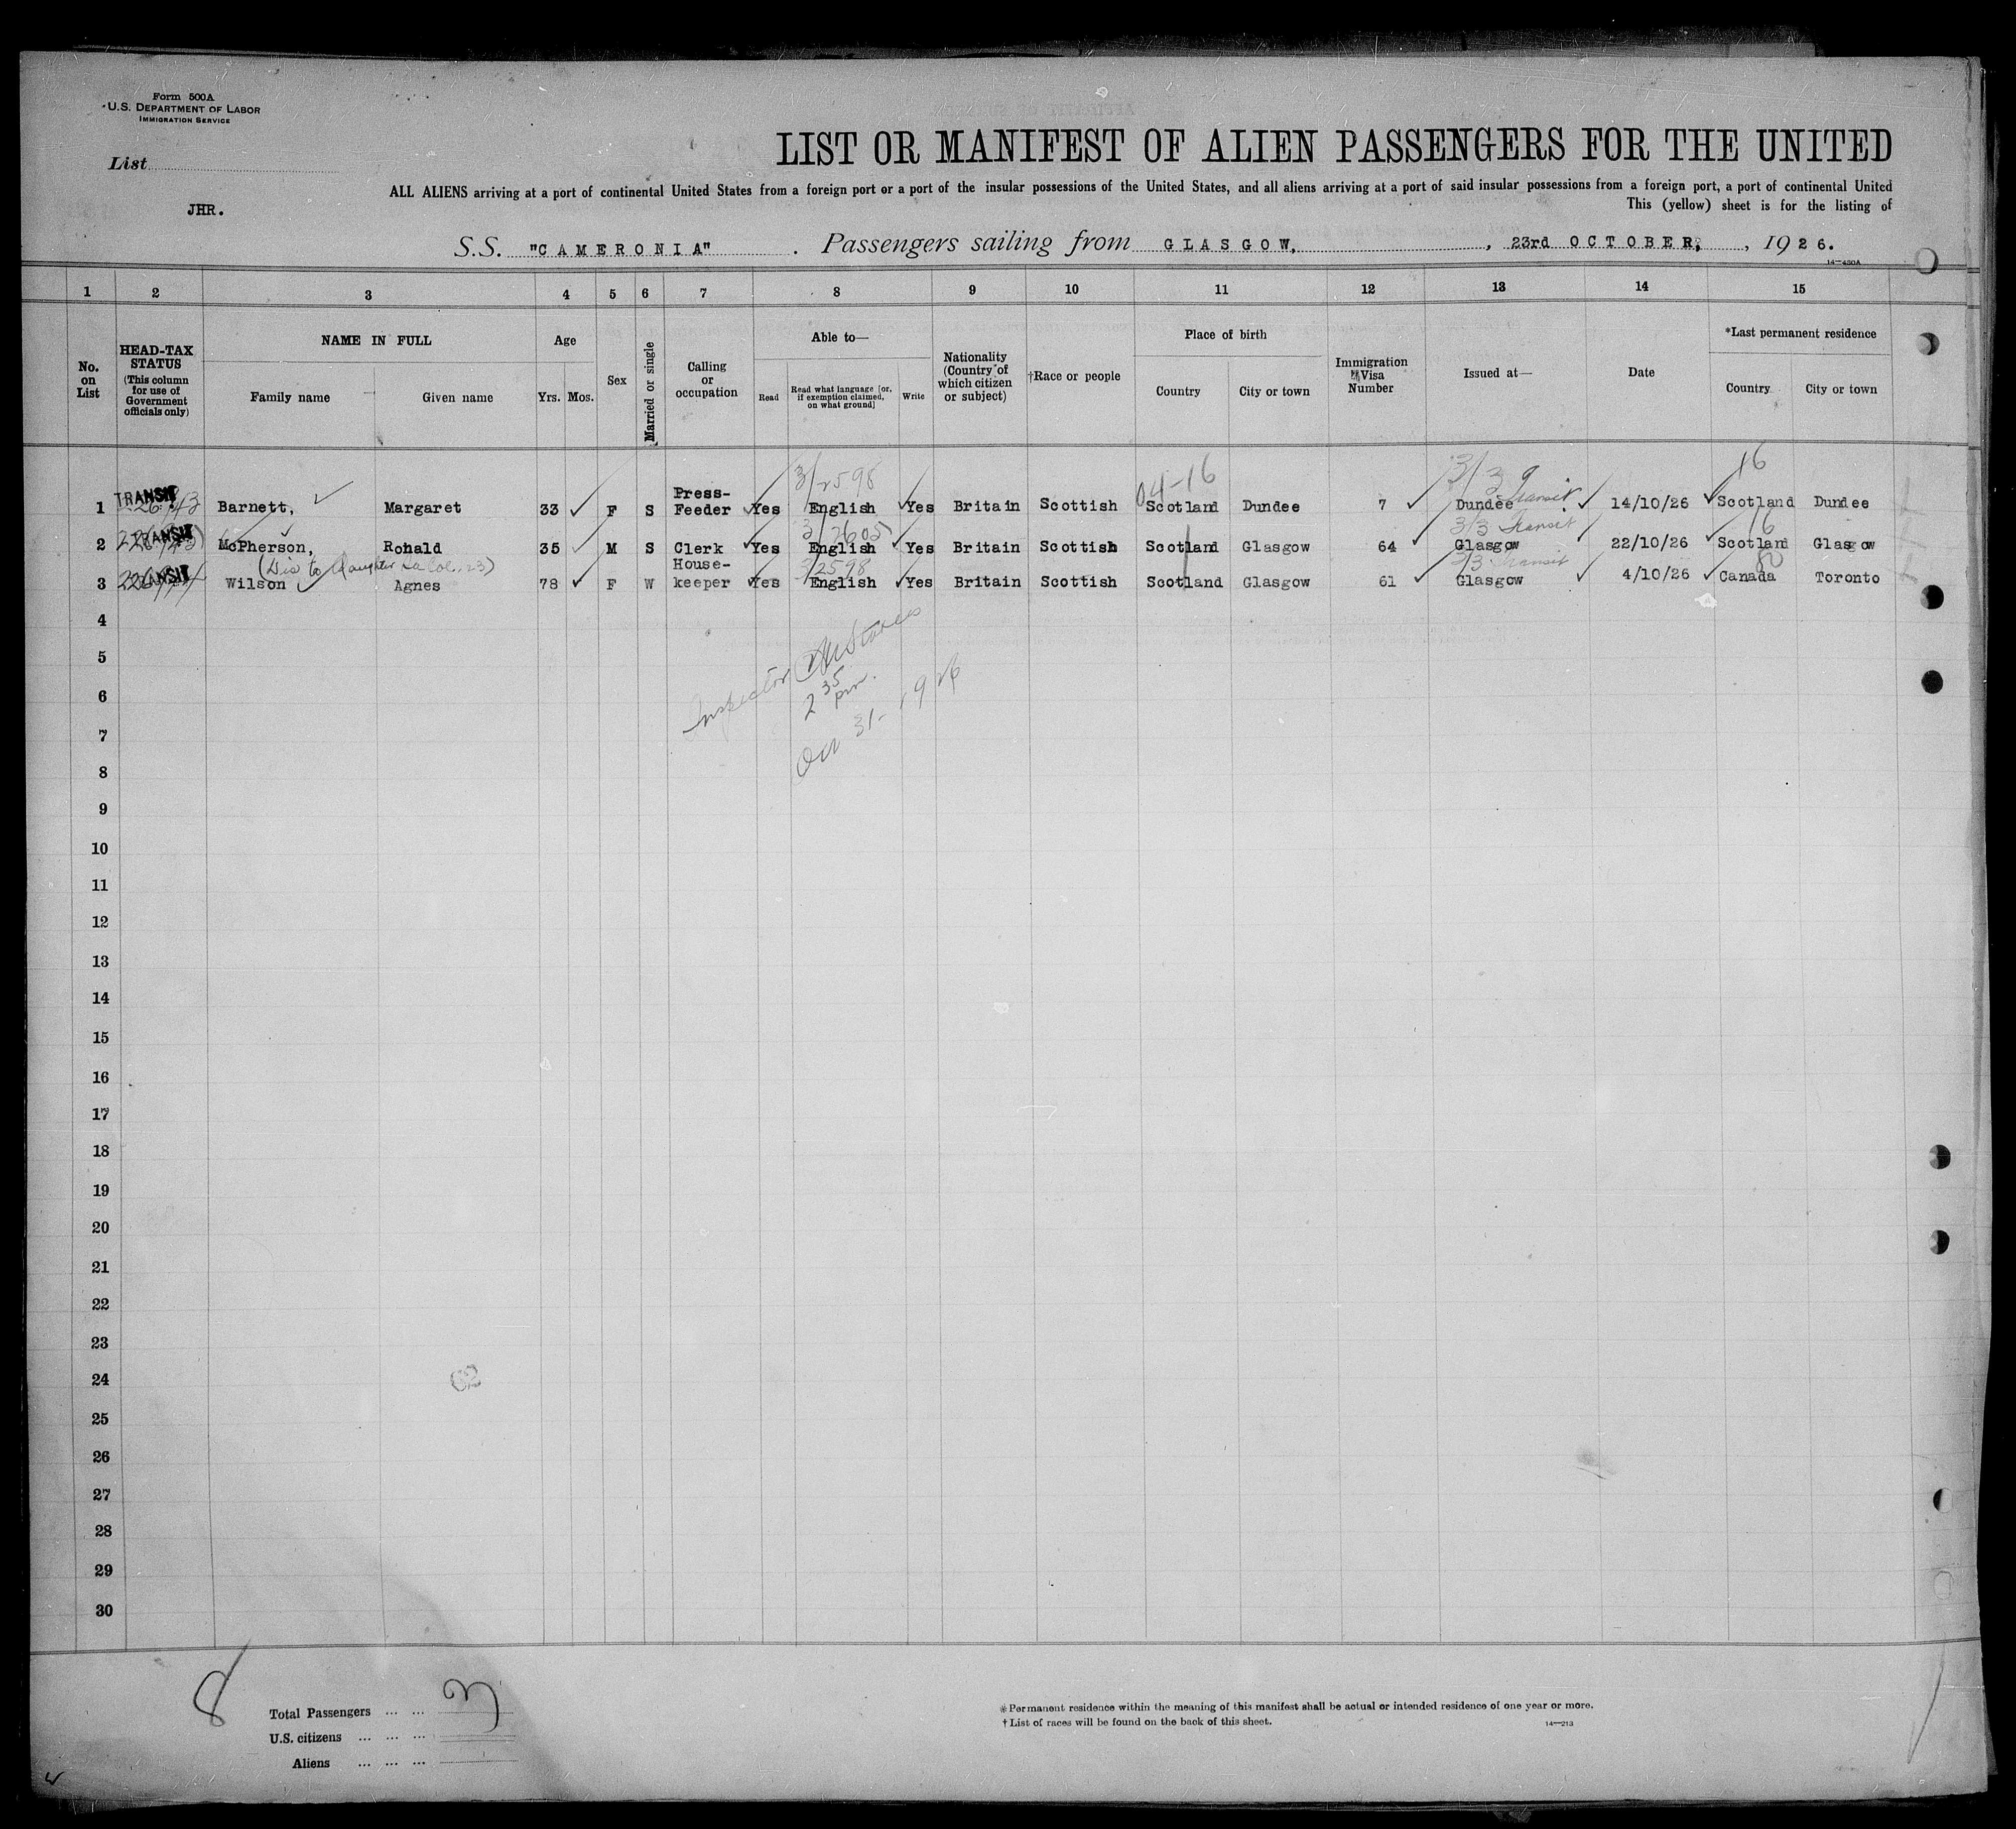 Form 500A
U.S. DEPARTMENT OF LABOR
IMMIGRATION SERVICE
List
JHR.
LIST OR MANIFEST OF ALIEN PASSENGERS FOR THE UNITED
ALL ALIENS arriving at a port of continental United States from a foreign port or a port of the insular possessions of the United States, and all aliens arriving at a port of said insular possessions from a foreign port, a port of continental United
This (yellow) sheet is for the listing of
S.S. "CAMERONIA" . Passengers sailing from GLASGOW, , 23rd OCTOBER, , 1926.
14-430A
1 2 3 4 5 6 7 8 9 10 11 12 13 14 15
No. on List
HEAD-TAX STATUS (This column for use of Government officials only)
NAME IN FULL
Family name Given name
Age
Yrs. Mos.
Sex
Married or single
Calling or occupation
Able to—
Read Read what language [or, if exemption claimed, on what ground] Write
Nationality (Country of which citizen or subject)
†Race or people
Place of birth
Country City or town
Immigration Visa Number
Issued at—
Date
*Last permanent residence
Country City or town
3/2598 04-16 3/3 Transit 16
1 TRANSIT Barnett, Margaret 33 F S Press-Feeder Yes English Yes Britain Scottish Scotland Dundee 7 Dundee 14/10/26 Scotland Dundee
3/2605 3/3 Transit 16
2 TRANSIT McPherson, Ronald 35 M S Clerk Yes English Yes Britain Scottish Scotland Glasgow 64 Glasgow 22/10/26 Scotland Glasgow
2598 3/3 Transit
3 TRANSIT Wilson Agnes 78 F W House-keeper Yes English Yes Britain Scottish Scotland Glasgow 61 Glasgow 4/10/26 Canada Toronto
4
5
Inspector
6
2 35 pm.
7
31-1926
8
9
10
11
12
13
14
15
16
17
18
19
20
21
22
23
24
62
25
26
27
28
29
30
8
Total Passengers ... ... 3
U.S. citizens ... ... ...
Aliens ... ... ...
* Permanent residence within the meaning of this manifest shall be actual or intended residence of one year or more.
† List of races will be found on the back of this sheet.
14-213